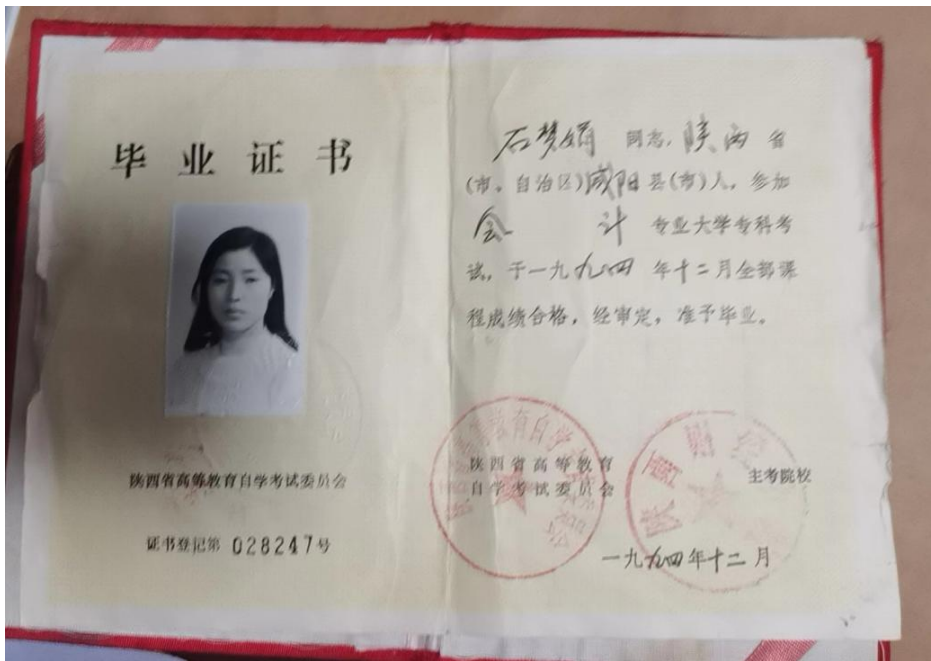 毕业证书
陕西省高等教育自学考试委员会
证书登记第028247号
石梦娟 同志,陕西省
(市、自治区)咸阳县(市)人,参加
会计 专业大学专科考
试,于一九九四年十二月全部课
程成绩合格,经审定,准予毕业。
陕西省高等教育
自学考试委员会
主考院校
一九九四年十二月